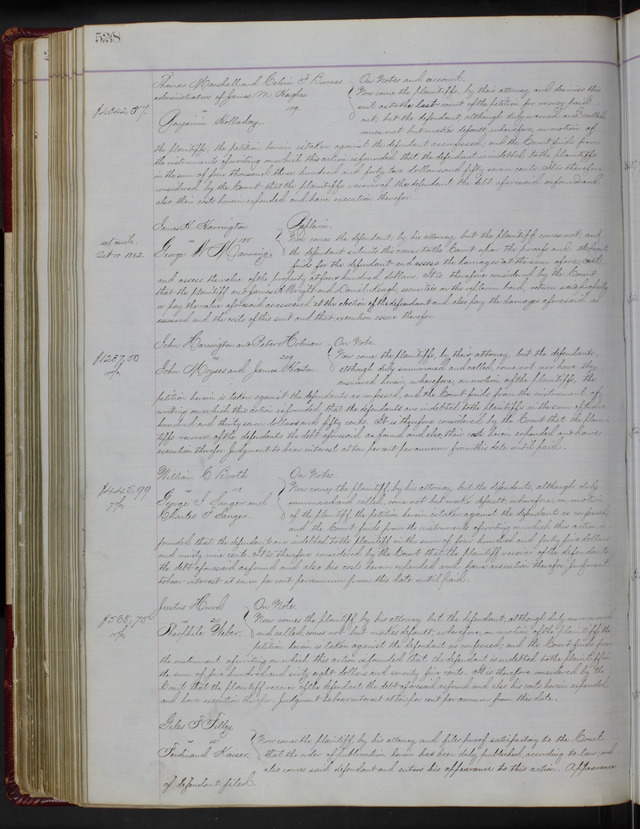 538
Thomas Marshall and Calvin F Burnes } On Notes and account.
administrators of James M Hughes Now come the plaintiffs, by their attorney, and dismiss this
$4342.57. vs suit as to the last count of the petition for money
Benjamin Holladay. out, but the defendant, although duly summoned and called
comes not but makes default, wherefore, on motion of
the plaintiffs, the petition herein is taken against the defendant as confessed, and the Court finds from
the instruments of writing on which this action is founded that the defendant is indebted to the plaintiffs
in the sum of four thousand three hundred and forty two dollars and fifty seven cents. It is therefore
considered by the Court that the plaintiffs recover of the defendant the debt aforesaid as found and
also their costs herein expended and have execution therefor.
James H. Harrington } Replevin.
set aside vs Now comes the defendant, by his attorney, but the plaintiff comes not, and
Oct 10 1862. George W Manning the defendant submits the cause to the Court upon the proofs and the Court
finds for the defendant and assesses the damages at the sum of one cent
and assess the value of the property at four hundred dollars. It is therefore considered by the Court
that the plaintiff and James H Bright and Daniel Keagh, securities on the replevin bond, return said property
or pay the value aforesaid as assessed at the election of the defendant and also pay the damages aforesaid as
assessed and the costs of this suit and that execution issue therefor.
John Harrington and Peter Holman } On Note
$1237,50 vs Now come the plaintiffs, by their attorney, but the defendants,
10% John Moyses and James Horton. although duly summoned and called, come not nor have they
answered herein, wherefore, on motion of the plaintiffs, the
petition herein is taken against the defendants as confessed, and the Court finds from the instrument of
writing on which this action is founded, that the defendants are indebted to the plaintiffs in the sum of twelve
hundred and thirty seven dollars and fifty cents. It is therefore considered by the Court that the plain-
tiffs recover of the defendants the debt aforesaid as found and also, their costs herein expended and have
execution therefor. Judgment to bear interest at ten per cent per annum from this date until paid.
William C Booth } On Notes.
$445,99 vs Now comes the plaintiff, by his attorney, but the defendants, although duly
7% George F Sanger and summoned and called, come not but make default, wherefore, on motion
Charles F Sanger. of the plaintiff, the petition herein is taken against the defendants as confessed
and the Court finds from the instruments of writing on which this action is
founded, that the defendants are indebted to the plaintiff in the sum of four hundred and forty five dollars
and ninety nine cents. It is therefore considered by the Court that the plaintiff recover of the defendants
the debt aforesaid as found and also his costs herein expended and have execution therefor. Judgment
to bear interest at seven per cent per annum from this date until paid.
Justus } On Note.
$568,75 vs Now comes the plaintiff by his attorney but the defendant, although duly summoned
10% Theophile Weber. and called, comes not but makes default, wherefore, on motion of the plaintiff, the
petition herein is taken against the defendant as confessed, and the Court finds from
the instrument of writing on which this action is founded that the defendant is indebted to the plaintiff in
the sum of five hundred and sixty eight dollars and seventy five cents. It is therefore considered by the
Court that the plaintiff recover of the defendant the debt aforesaid as found and also his costs herein expended
and have execution therefor. Judgment to bear interest at ten per cent per annum from this date.
Giles F Filley
vs } Now comes the plaintiff, by his attorney and files proof satisfactory to the Court
Ferdinand Kaiser that the order of publication herein has been duly published according to law, and
also comes said defendant and enters his appearance to this action. Appearance
of defendant filed.